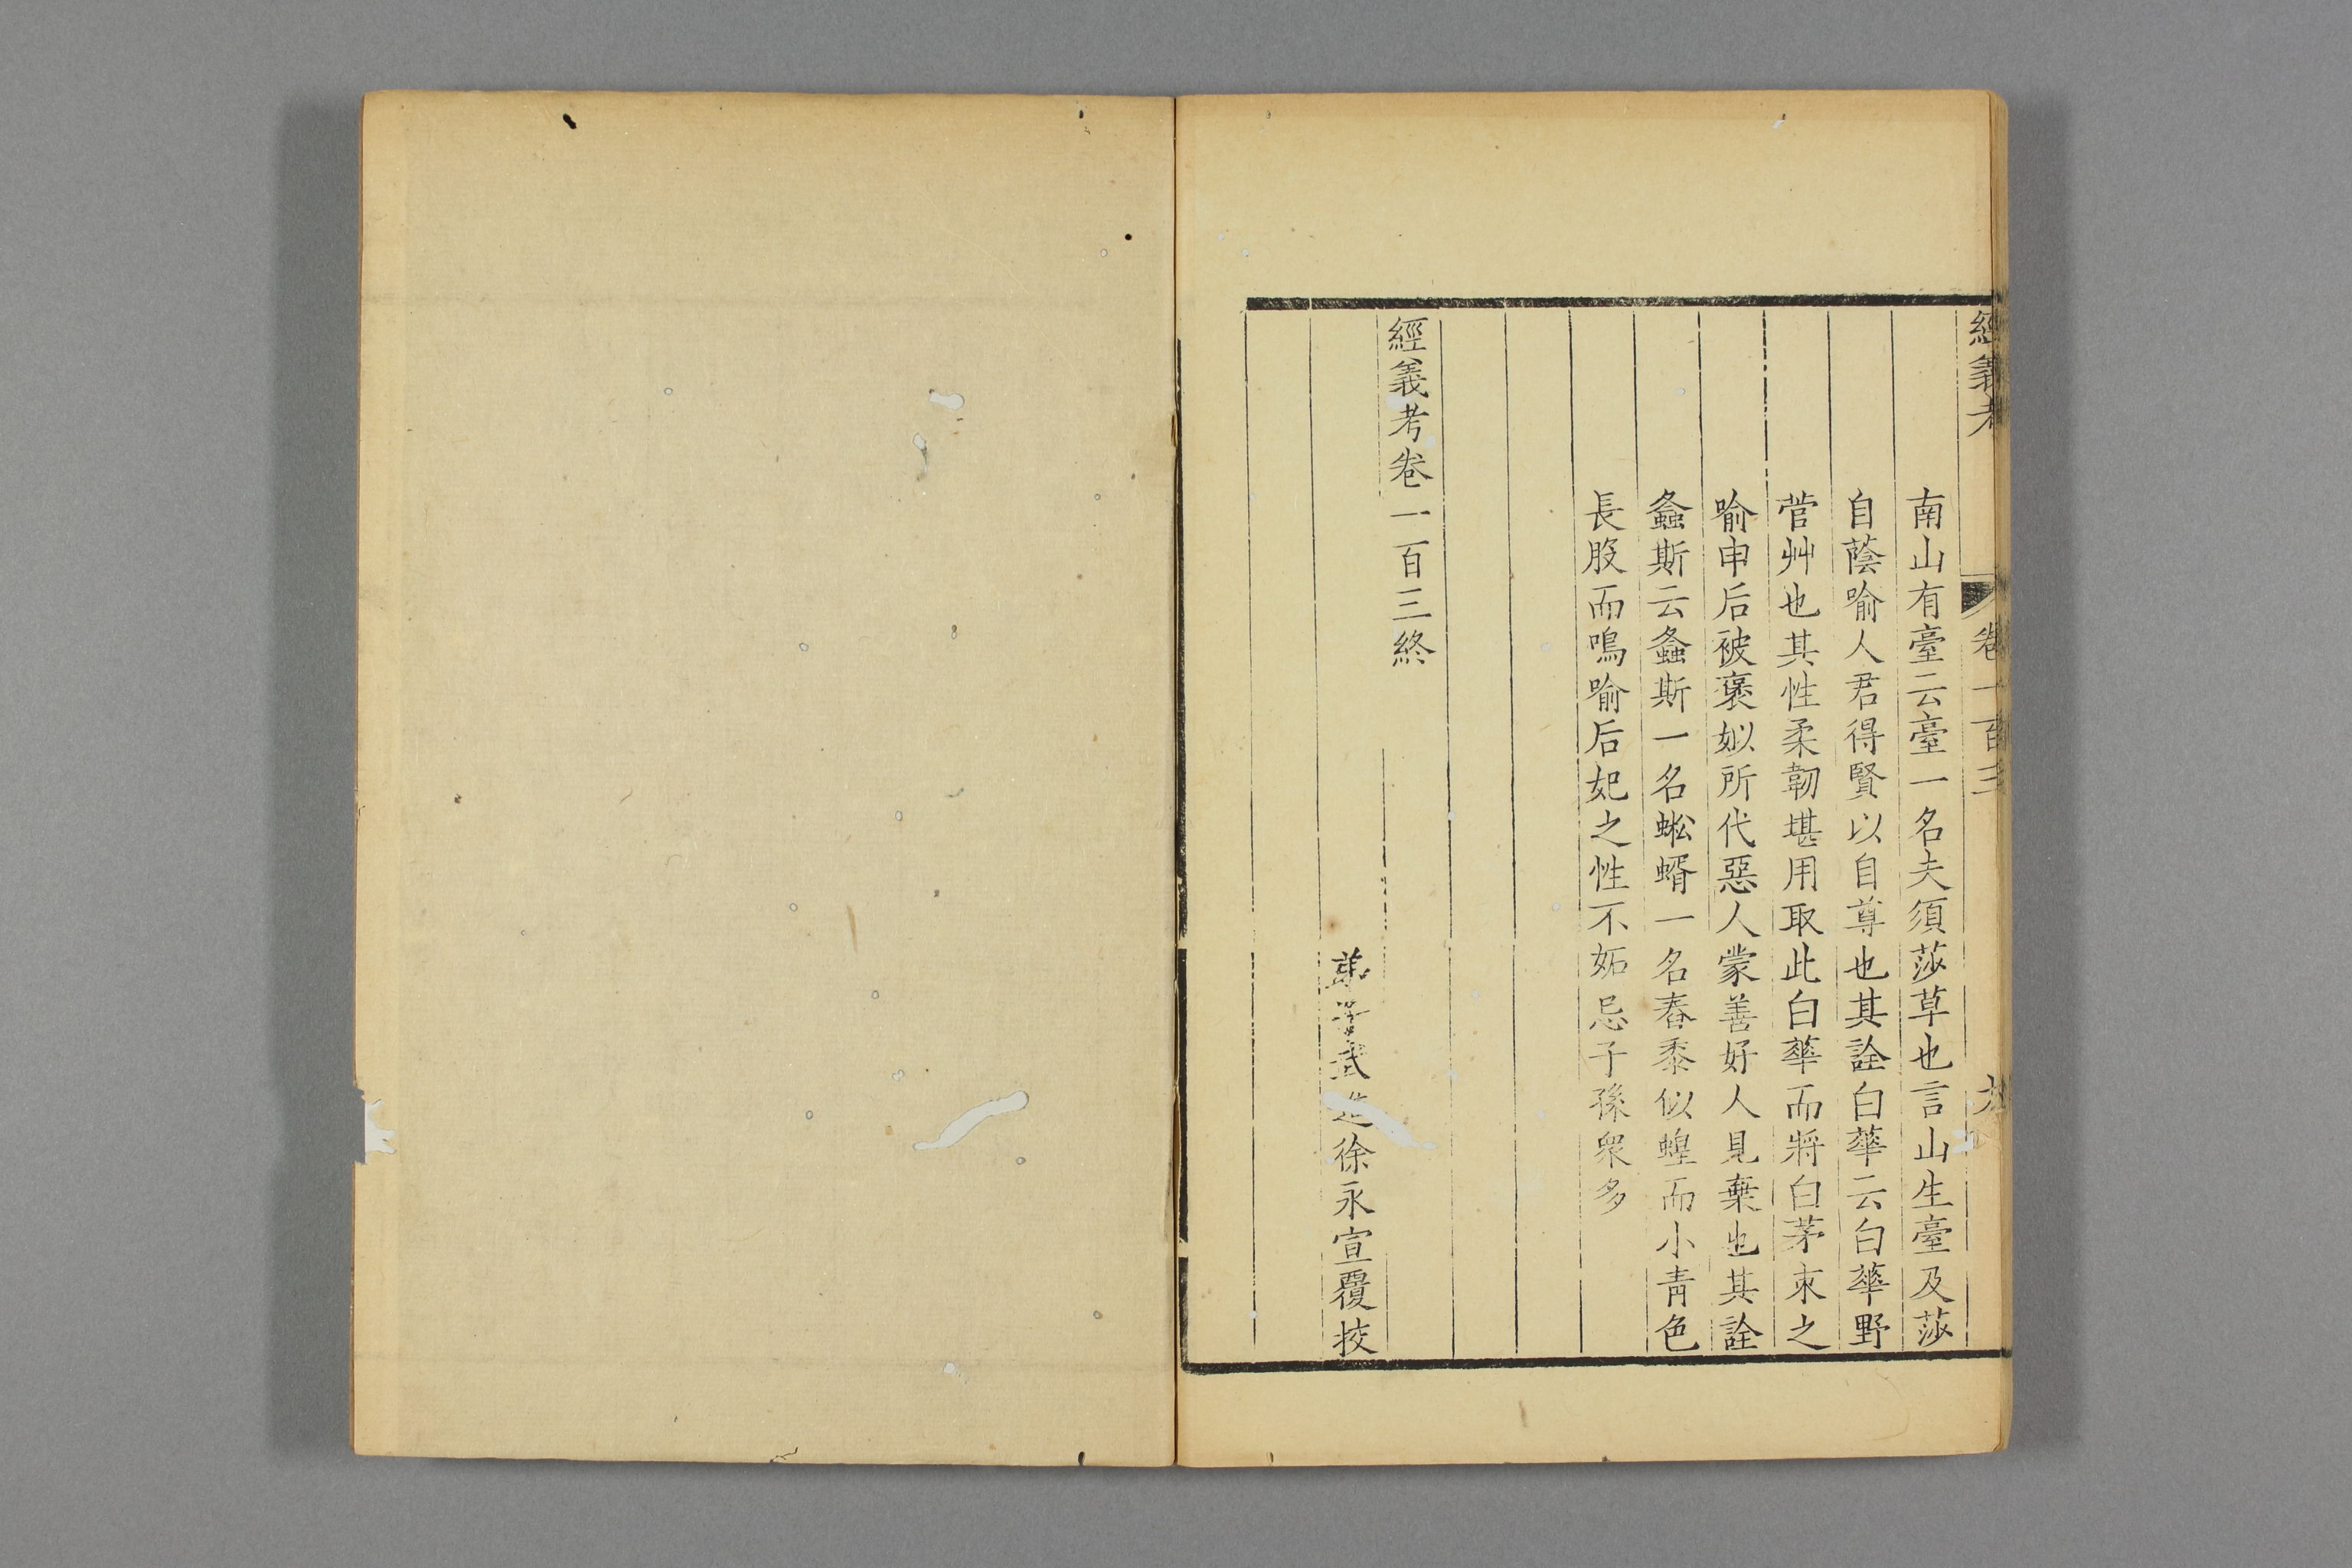 經義考
卷一百三
南山有臺云臺一名夫須莎草也言山生臺及莎
自蔭喻人君得賢以自尊也其詮白華云白華野
菅艸也其性柔韌堪用取此白華而將白茅束之
喻申后被褒姒所代惡人蒙善好人見棄也其詮
螽斯云螽斯一名蜙蝑一名舂黍似蝗而小青色
長股而鳴喻后妃之性不妬忌子孫衆多
經義考卷一百三終
武進徐永宣覆挍